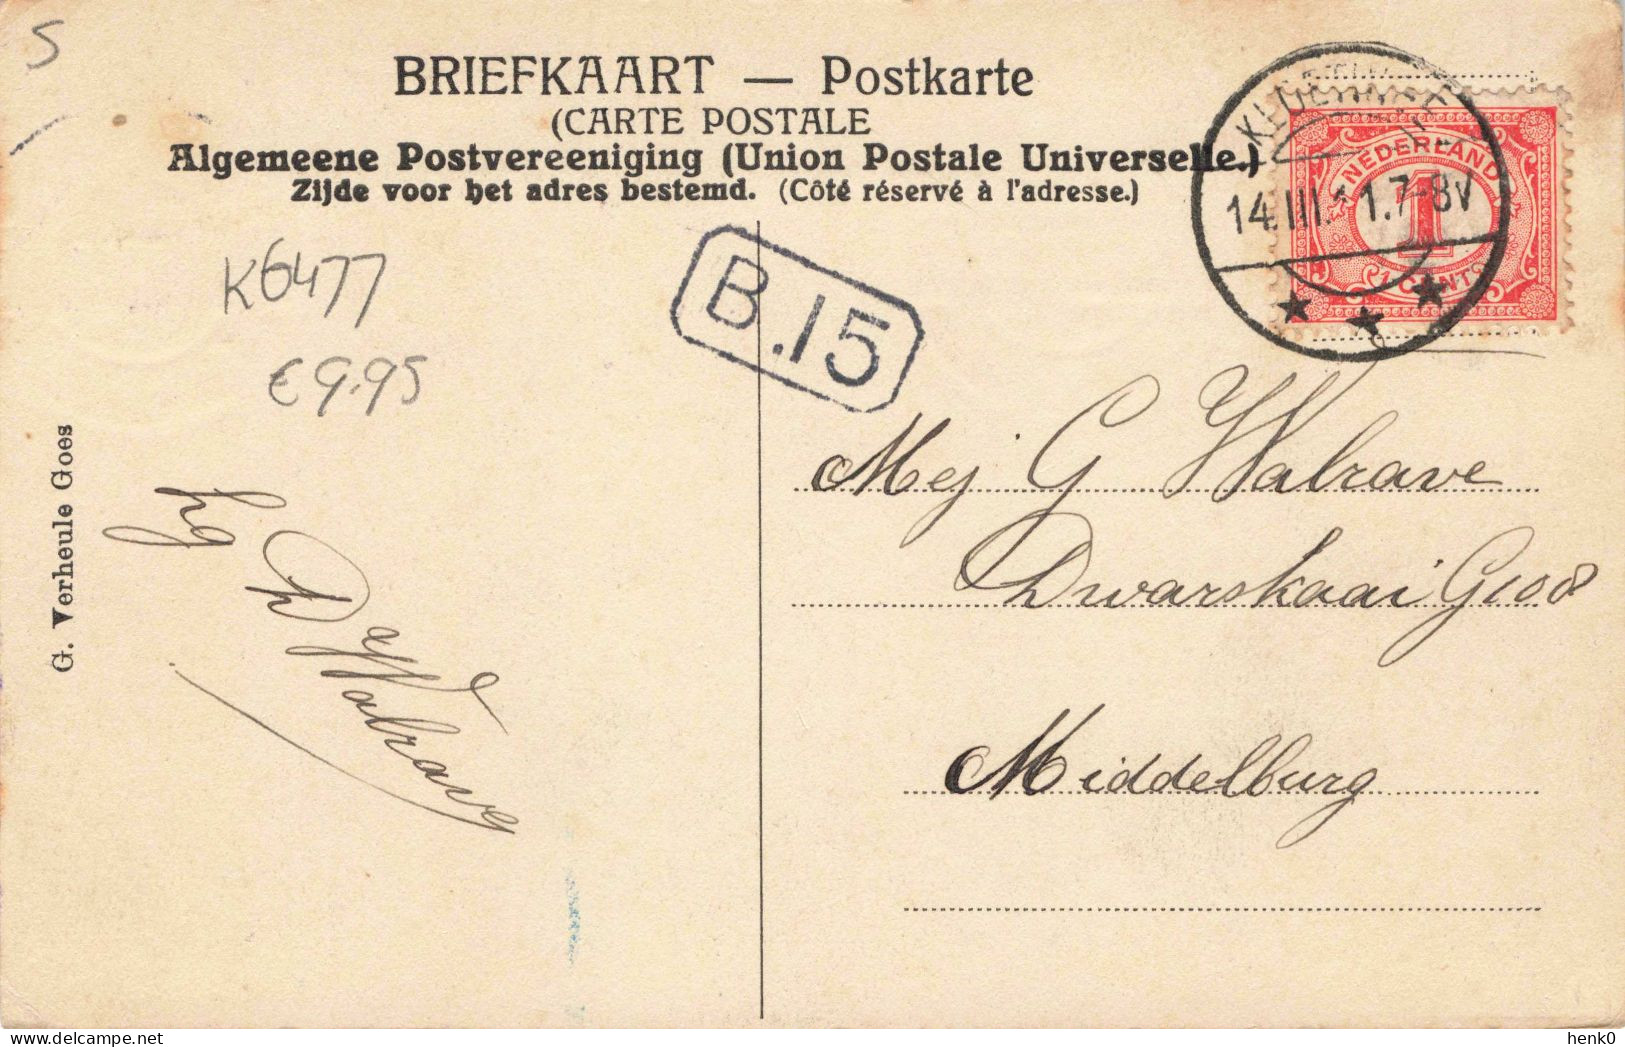 5
BRIEFKAART — Postkarte
(CARTE POSTALE
Algemeene Postvereeniging (Union Postale Universelle.)
Zijde voor het adres bestemd. (Côté réservé à l'adresse.)
14.III.11.7-8V
NEDERLAND
1
1 CENT
B.15
K6477
€ 9.95
G. Verheule Goes
hg D Walrave
Mej G Walrave
Dwarskaai G108
Middelburg
henk0